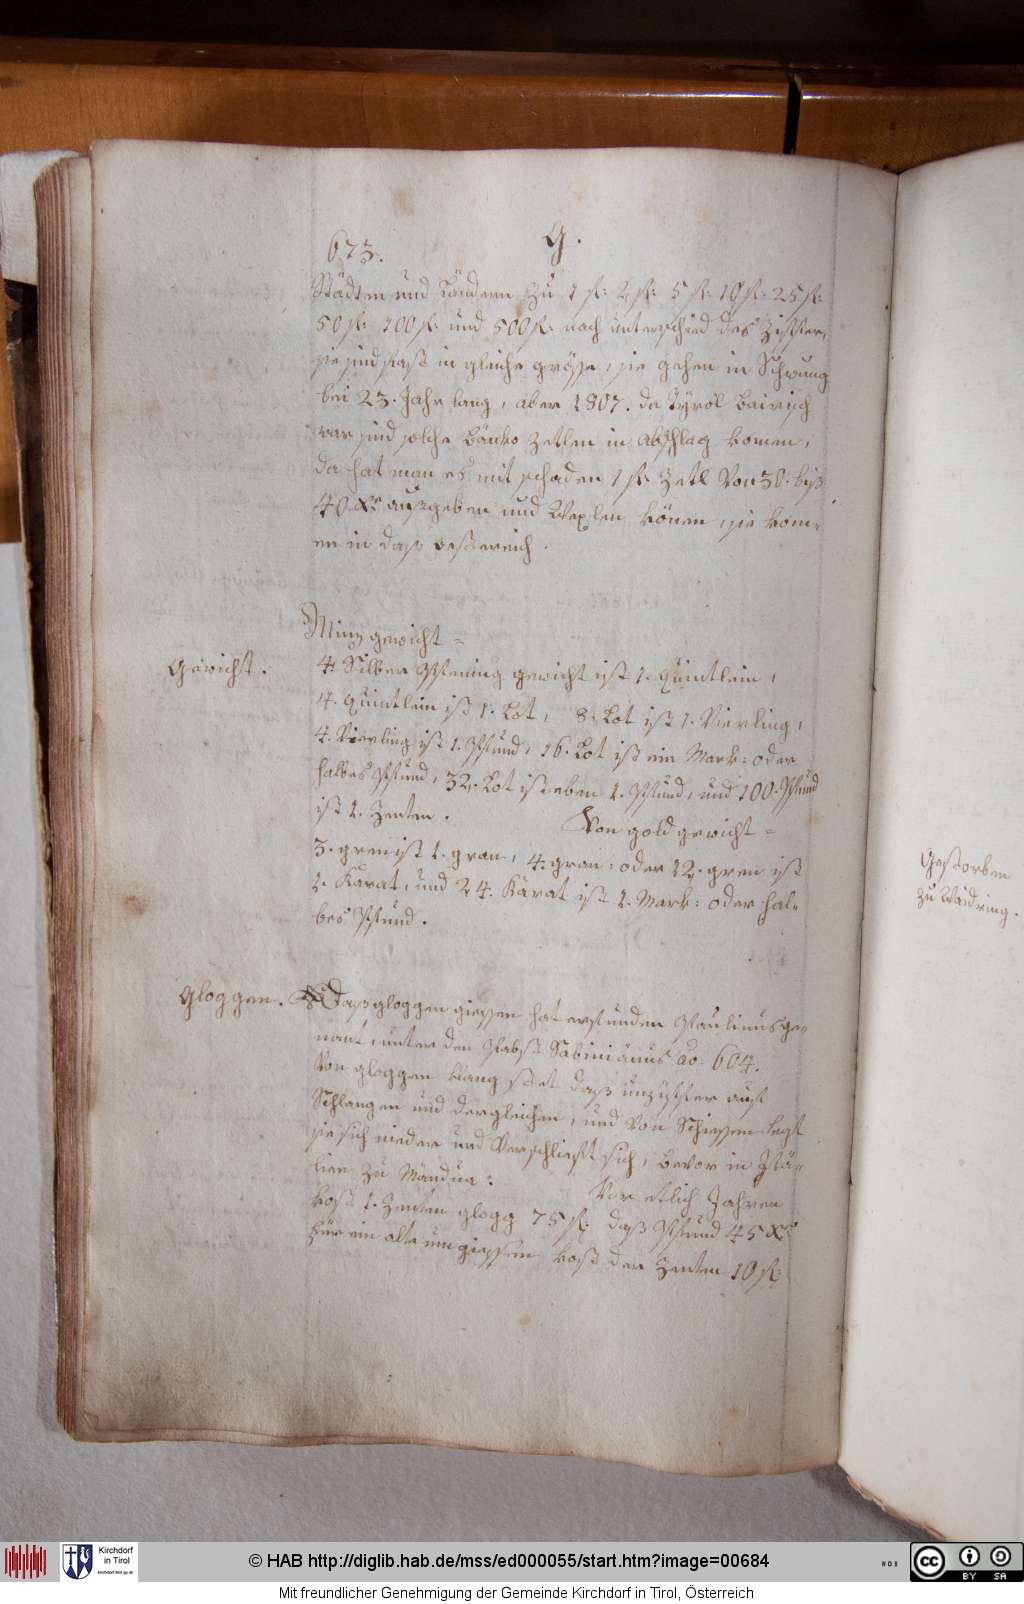 673.
G.
Städten und Ländern zu 1 f: 2 f: 5 f: 10 f: 25 f:
50 f: 100 f: und 500 f: nach unterschied des Ziffer,
sie sind fast in gleiche grösse, sie gehen in Schwung
bei 23. Jahr lang, aber 1807. da Tÿrol Bairisch
war sind solche Bänko Zetlen in Abschlag komen,
da hat man es mit schaden 1 f: Zetl Von 38. biß
40 Xr ausgeben und Wexlen könen, sie kom-
en in daß oesterreich.
Minz gewicht =
Gewicht.
4. Silber Pfening gewicht ist 1. Quintlein,
4. Quintlein ist 1. Lot, 8. Lot ist 1. Vierling,
4. Vierling ist 1. Pfund, 16. Lot ist ein Mark: oder
halbes Pfund, 32. Lot ist eben 1. Pfund, und 100. Pfund
ist 1. Zenten.
Von gold gewicht =
3. gren ist 1. gran, 4. gran: oder 12. gren ist
1. Karat, und 24. Karat ist 1. Mark: oder hal-
bes Pfund.
Gloggen.
Daß gloggen giessen hat erfunden Paulinus ge-
nant, unter den Pabst Sabiniänus ao: 604.
Von gloggen klang daß unzüffer auf
Schlangen und dergleichen, und Von Schiessen legt
sie sich nieder und Verschlieft sich, bevor in Itä-
lien zu Mandua:
Vor etlich Jahren
kost 1. Zenten glogg 75 f: daß Pfund 45 Xr
für ein alte um giessen kost der Zenten 10 f:
Gestorben
zu Waidring.
© HAB http://diglib.hab.de/mss/ed000055/start.htm?image=00684
Mit freundlicher Genehmigung der Gemeinde Kirchdorf in Tirol, Österreich
Kirchdorf
in Tirol
kirchdorf.tirol.gv.at
WDB
CC
BY SA